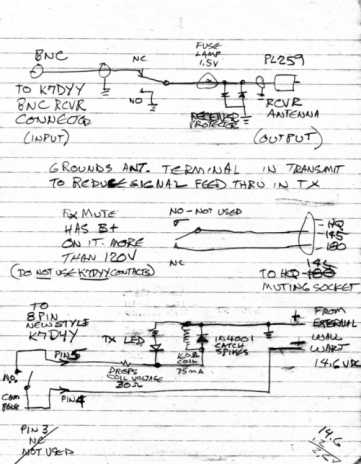 BNC
NC
FUSE
LAMP
1.5V
PL259
TO K7DYY
BNC RCVR
CONNECTOR
(INPUT)
NO
RECEIVER
PROTECTOR
RCVR
ANTENNA
(OUTPUT)
GROUNDS ANT. TERMINAL IN TRANSMIT
TO REDUCE SIGNAL FEED THRU IN TX
MUTE
HAS B+
ON IT. MORE
THAN 120V
(DO NOT USE K7DYY CONTACTS)
NO - NOT USED
NC
HQ
145
180
145
TO HQ-180
MUTING SOCKET
TO
8 PIN
NEW STYLE
K7DYY
PIN 5
TX LED
DROPS
COIL VOLTAGE
30Ω
COIL
75mA
1N4001
CATCH
SPIKES
FROM
EXTERNAL
WALL
WART
14.6 VDC
NO
COM
PIN 4
PIN 3
NC
NOT USED
14.6